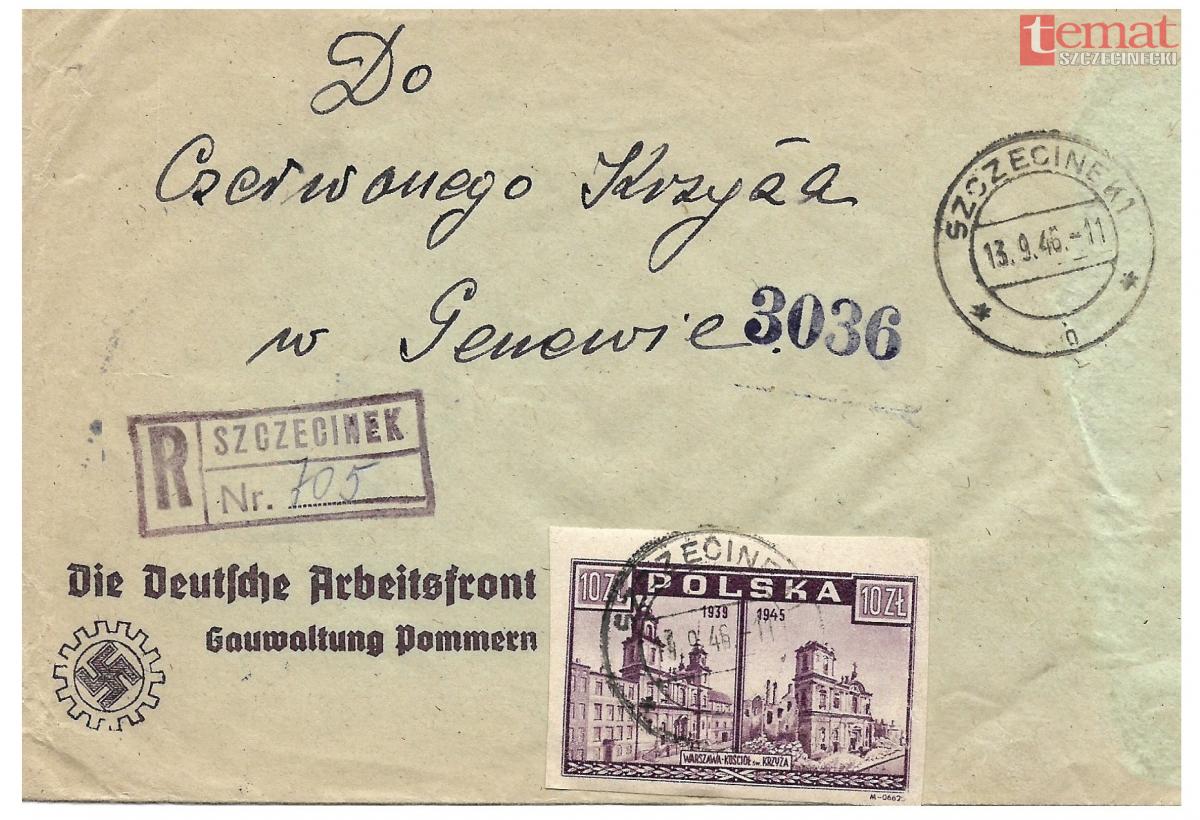 temat
SZCZECINECKI
Do
Czerwonego Krzyża
w Genewie
3036
SZCZECINEK 1
13.9.46.-11
R
SZCZECINEK
Nr. 705
Die Deutsche Arbeitsfront
Gauwaltung Pommern
SZCZECINEK
13.9.46.-11
10 ZŁ
POLSKA
10 ZŁ
1939
1945
WARSZAWA-KOŚCIÓŁ św. KRZYŻA